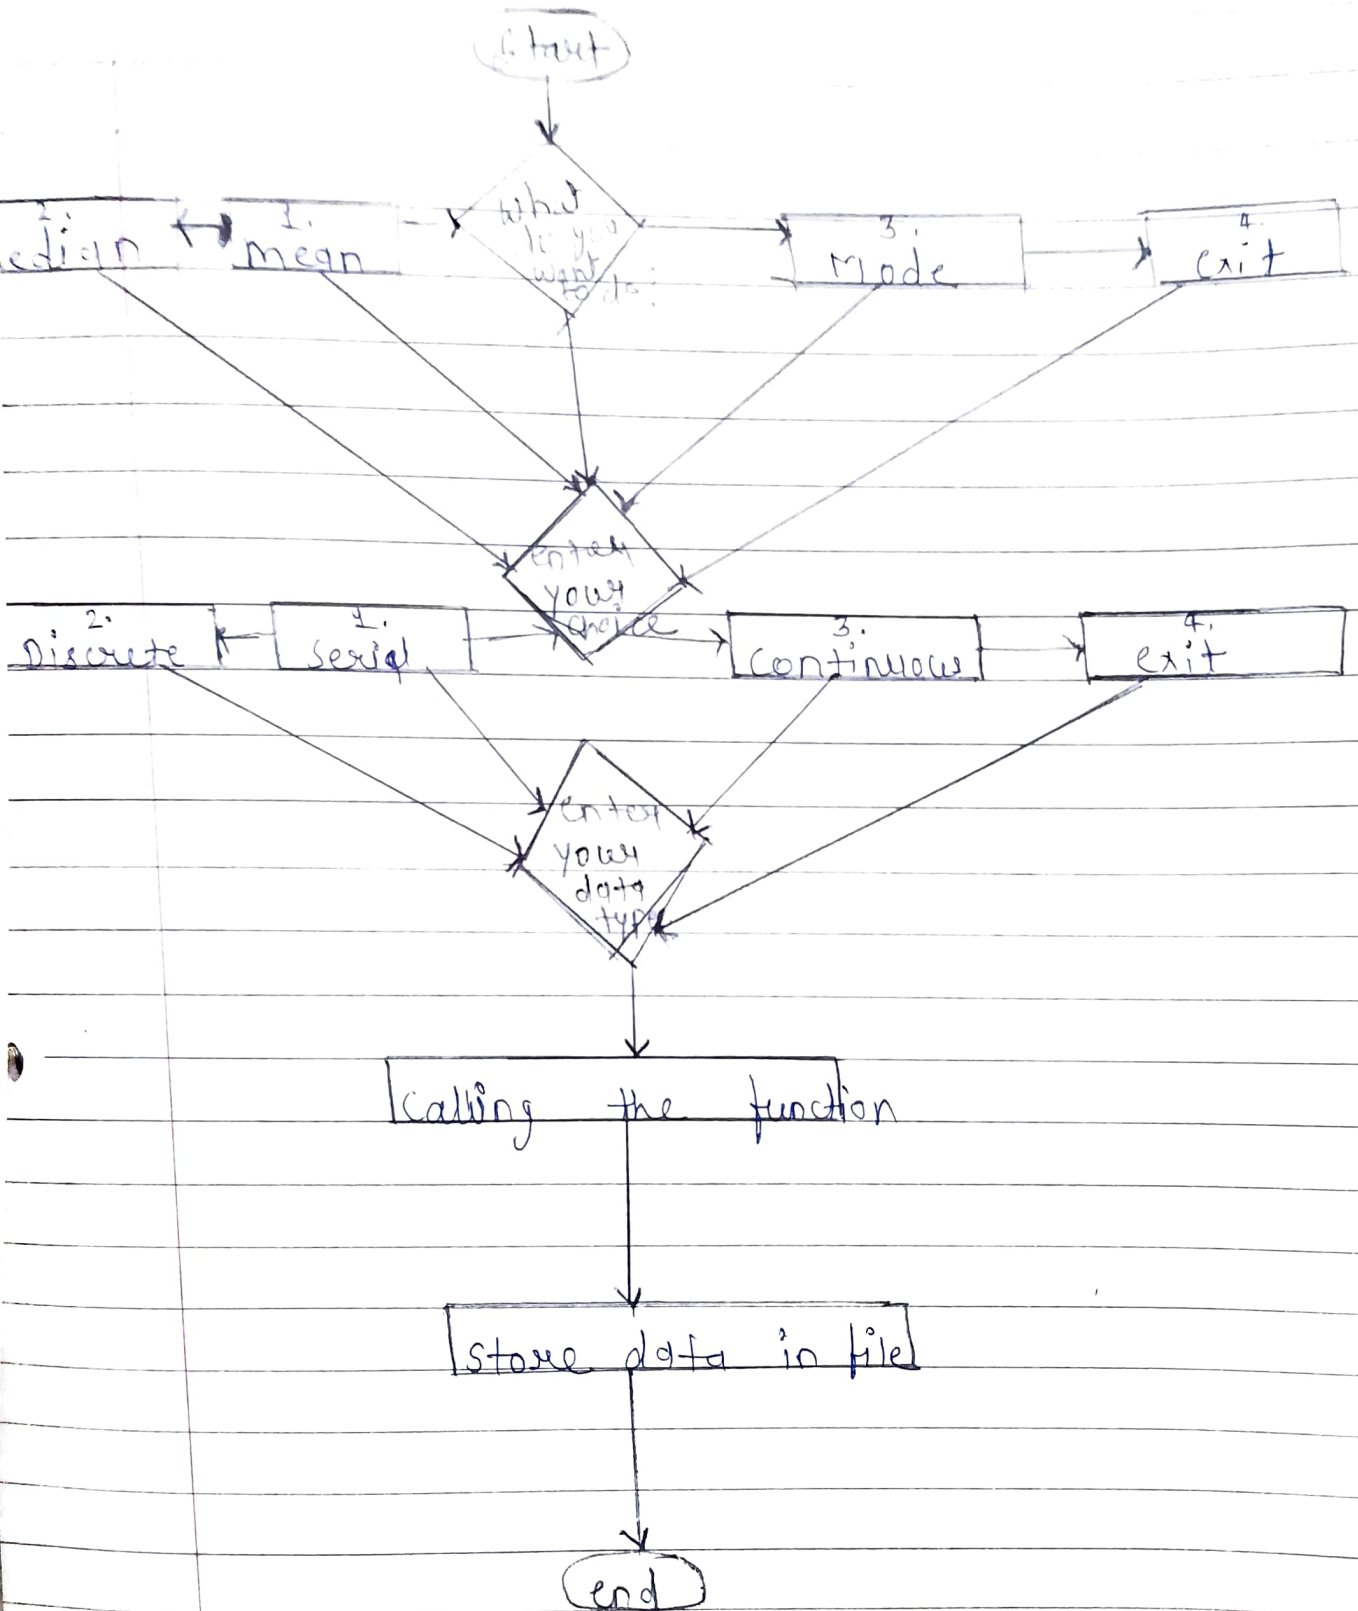 Start
What
do you
want
to do:
2.
edian
1.
mean
3.
Mode
4.
exit
enter
your
choice
2.
Discrete
1.
serial
3.
continuous
4.
exit
enter
your
data
type
calling the function
store data in file
end